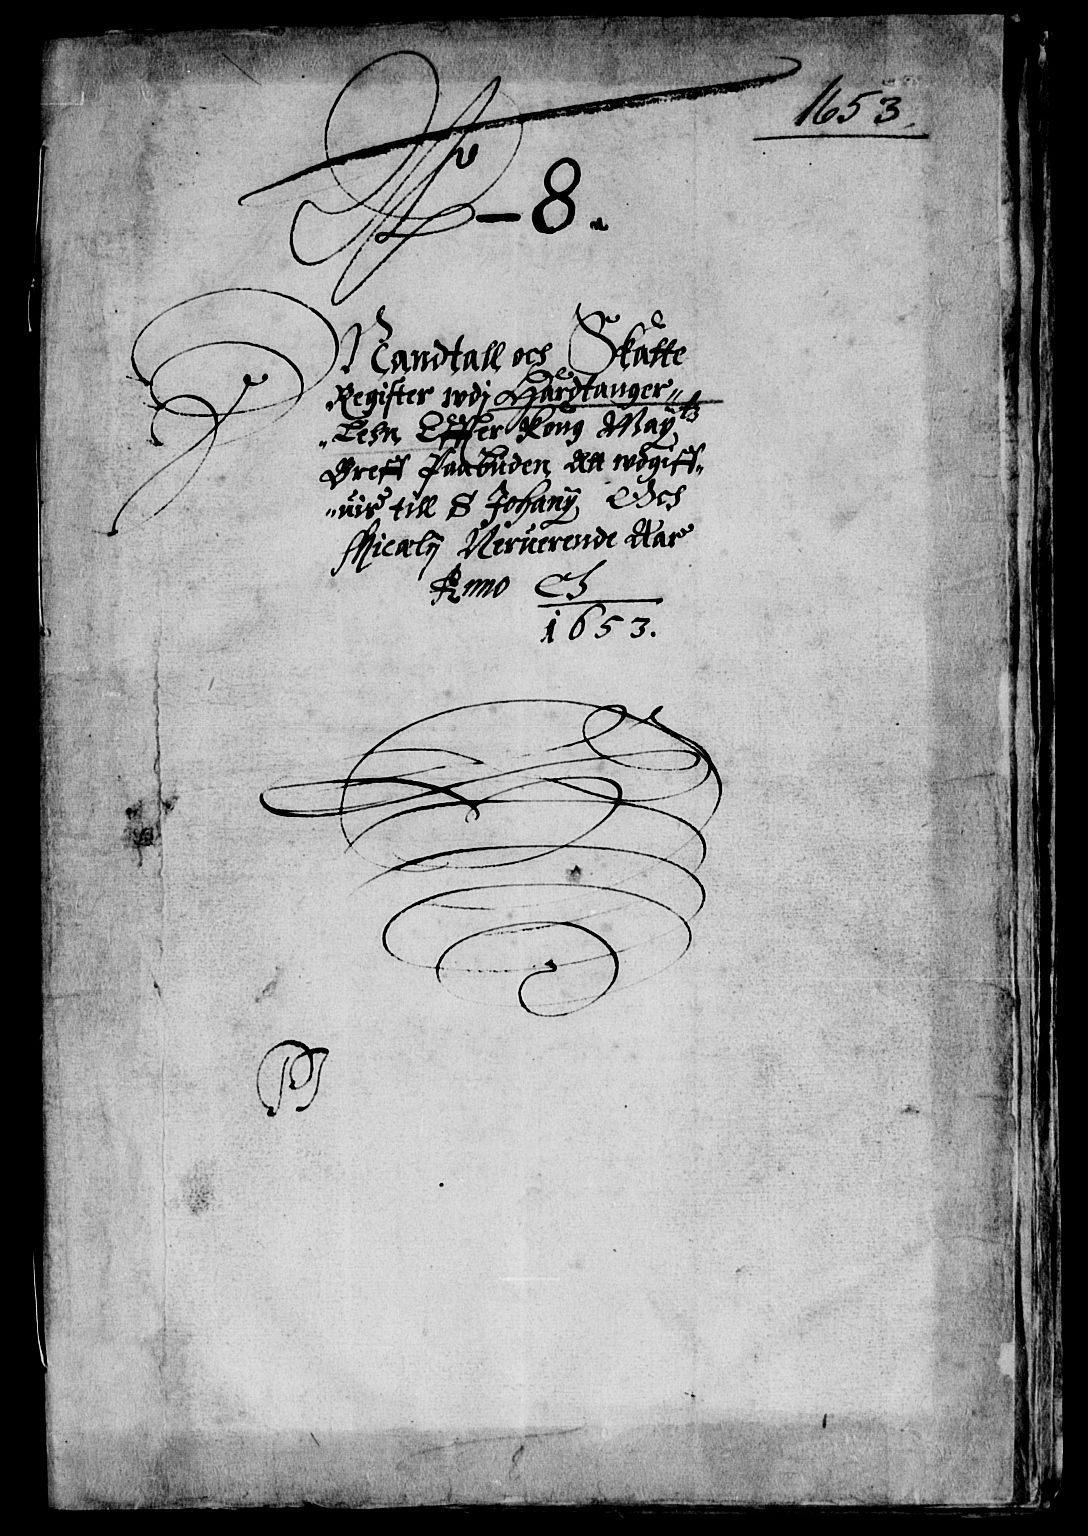 1653.
No – 8.
Mandtall och Skatte
Register wdj Hardtanger„
„Lehn Effter Kong May tz
Breffs Paabuden Att wdgiff„
„uis till S Johanij Och
Micaelij Neruerende Aar
Anno &
1653.